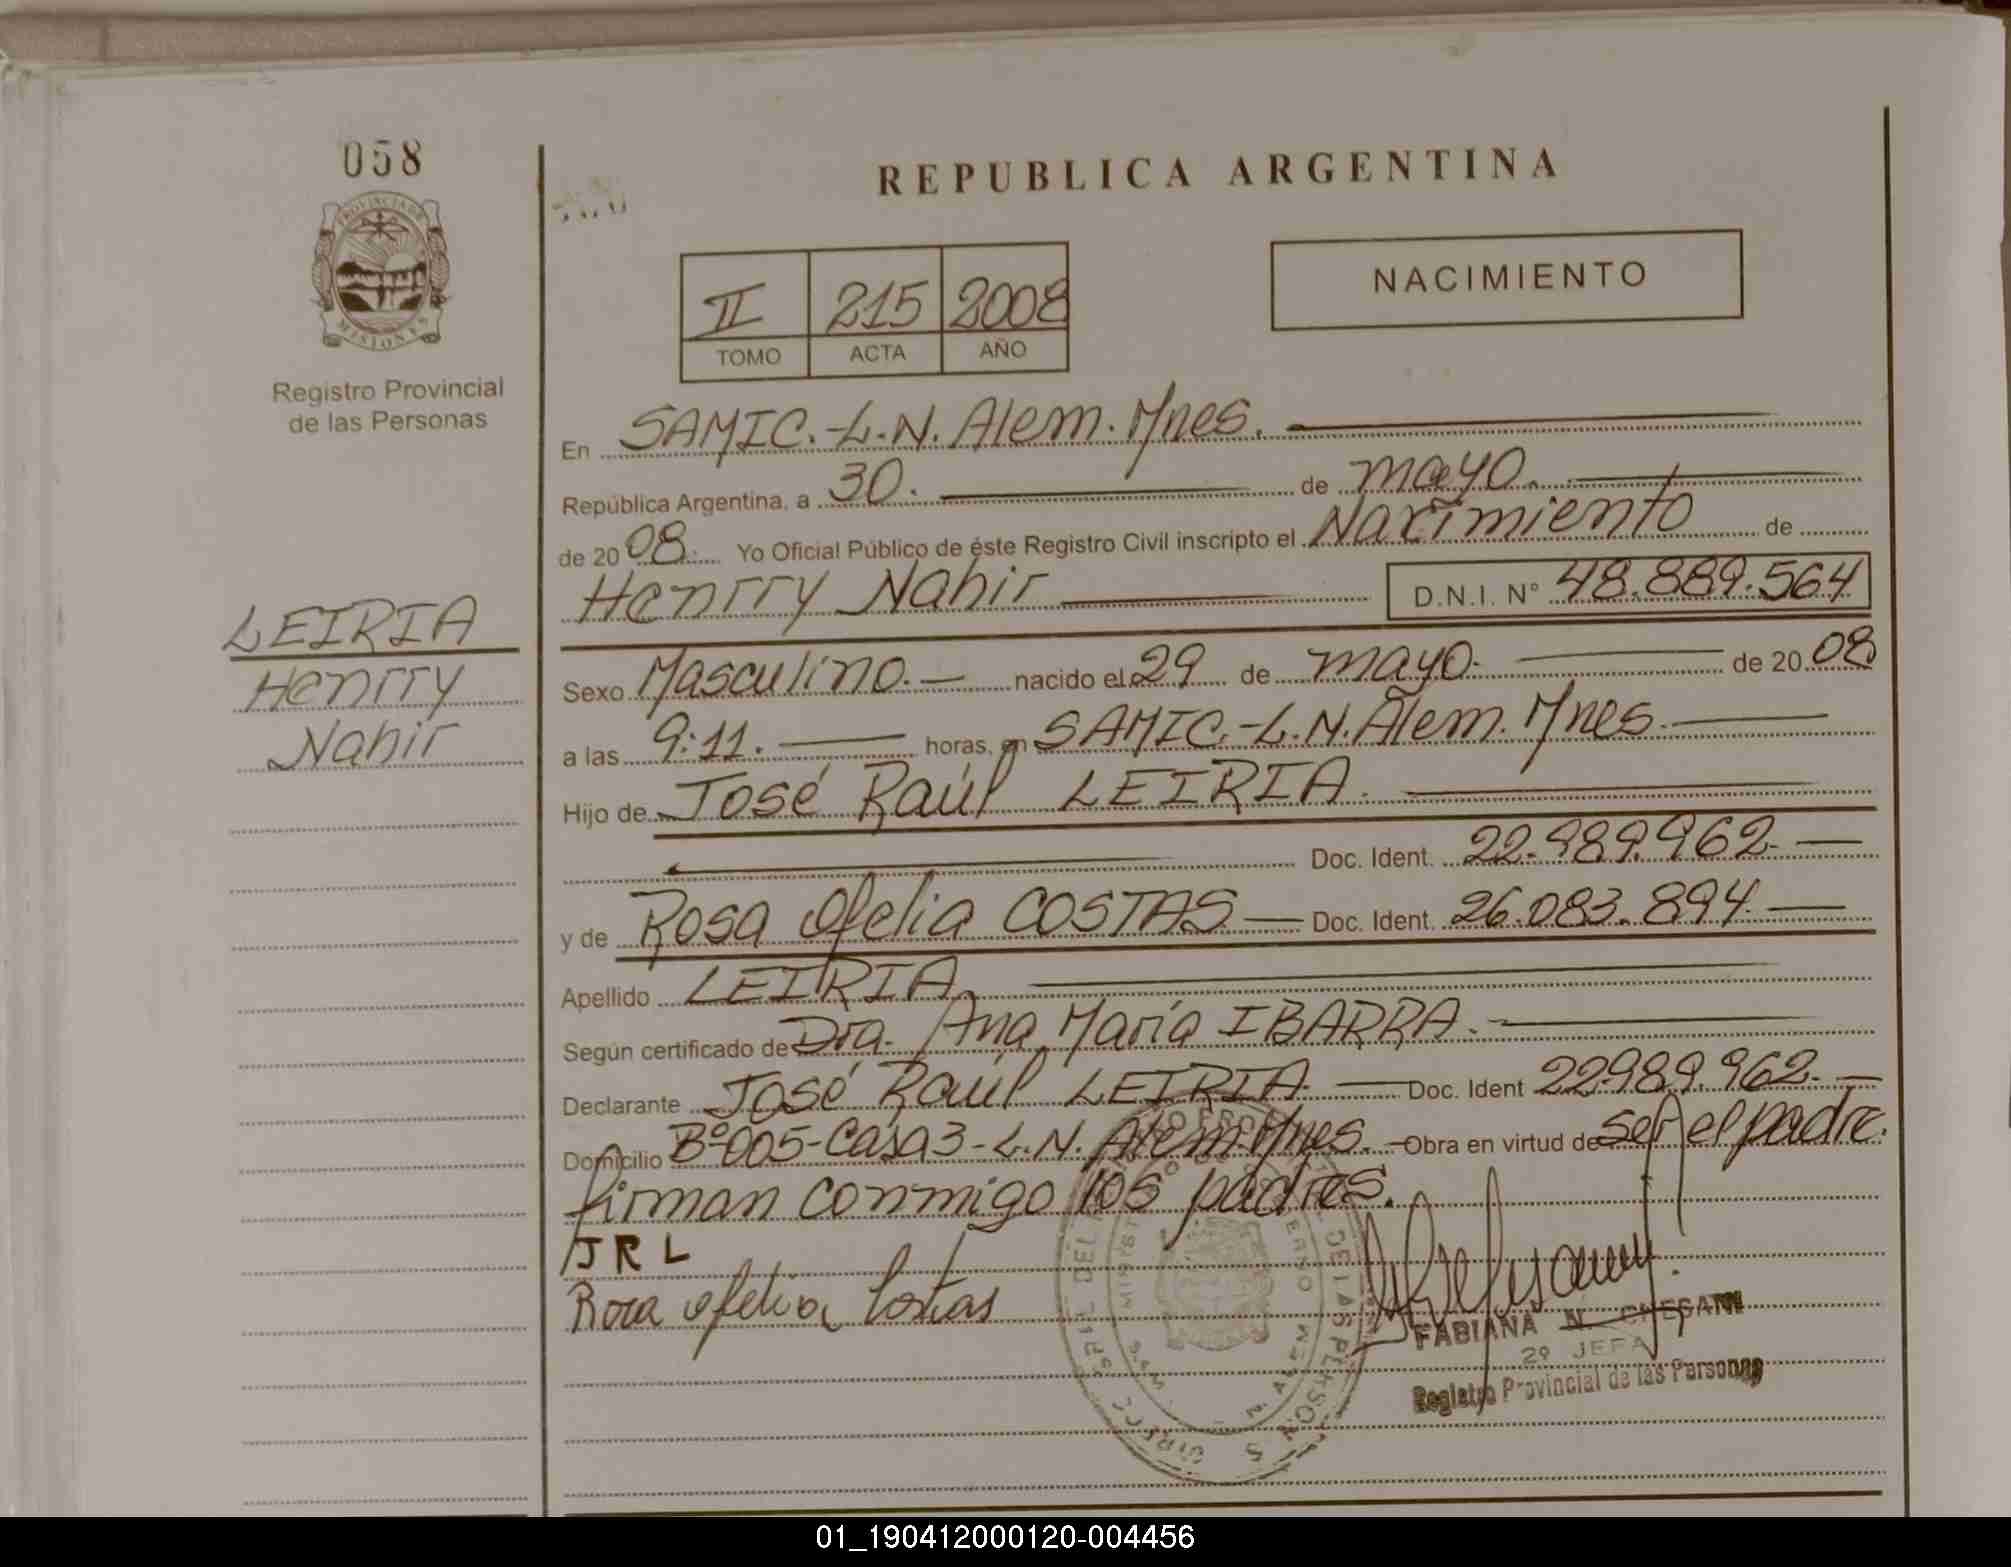 058
PROVINCIA DE
MISIONES
Registro Provincial
de las Personas
LEIRIA
Henrry
Nahir
REPUBLICA ARGENTINA
II 215 2008
TOMO ACTA AÑO
NACIMIENTO
En SAMIC.-L.N. Alem. Mnes.
República Argentina, a 30. de mayo.
de 2008. Yo Oficial Público de éste Registro Civil inscripto el Nacimiento de
Henrry Nahir D.N.I. N° 48.889.564
Sexo Masculino.- nacido el 29 de mayo. de 2008
a las 9:11. horas, en SAMIC.-L.N. Alem. Mnes.
Hijo de José Raúl LEIRIA.
Doc. Ident. 22.989.962.-
y de Rosa Ofelia COSTAS - Doc. Ident. 26.083.894.-
Apellido LEIRIA.
Según certificado de Dra. Ana María IBARRA.-
Declarante José Raúl LEIRIA. - Doc. Ident 22989.962.-
Domicilio B°005-Casa3-L.N. Alem-Mnes. - Obra en virtud de ser el padre.
firman conmigo los padres.
JRL
Rosa Ofelia Costas
FABIANA N.
2º JEFA
Registro Provincial de las Personas
01_190412000120-004456